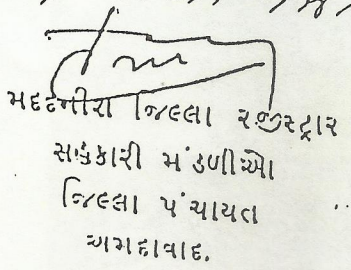 મદદનીશ જિલ્લા રજીસ્ટ્રાર
સહકારી મંડળીઓ
જિલ્લા પંચાયત
અમદાવાદ.